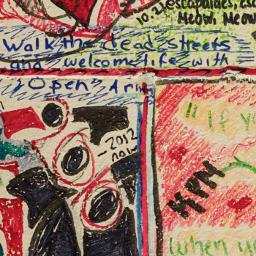 10.21
escapades, esc
Meosh, Meow
Walk the dead streets
and welcome life with
"Open" Arm
-2012
"If yo
MPM
when yo